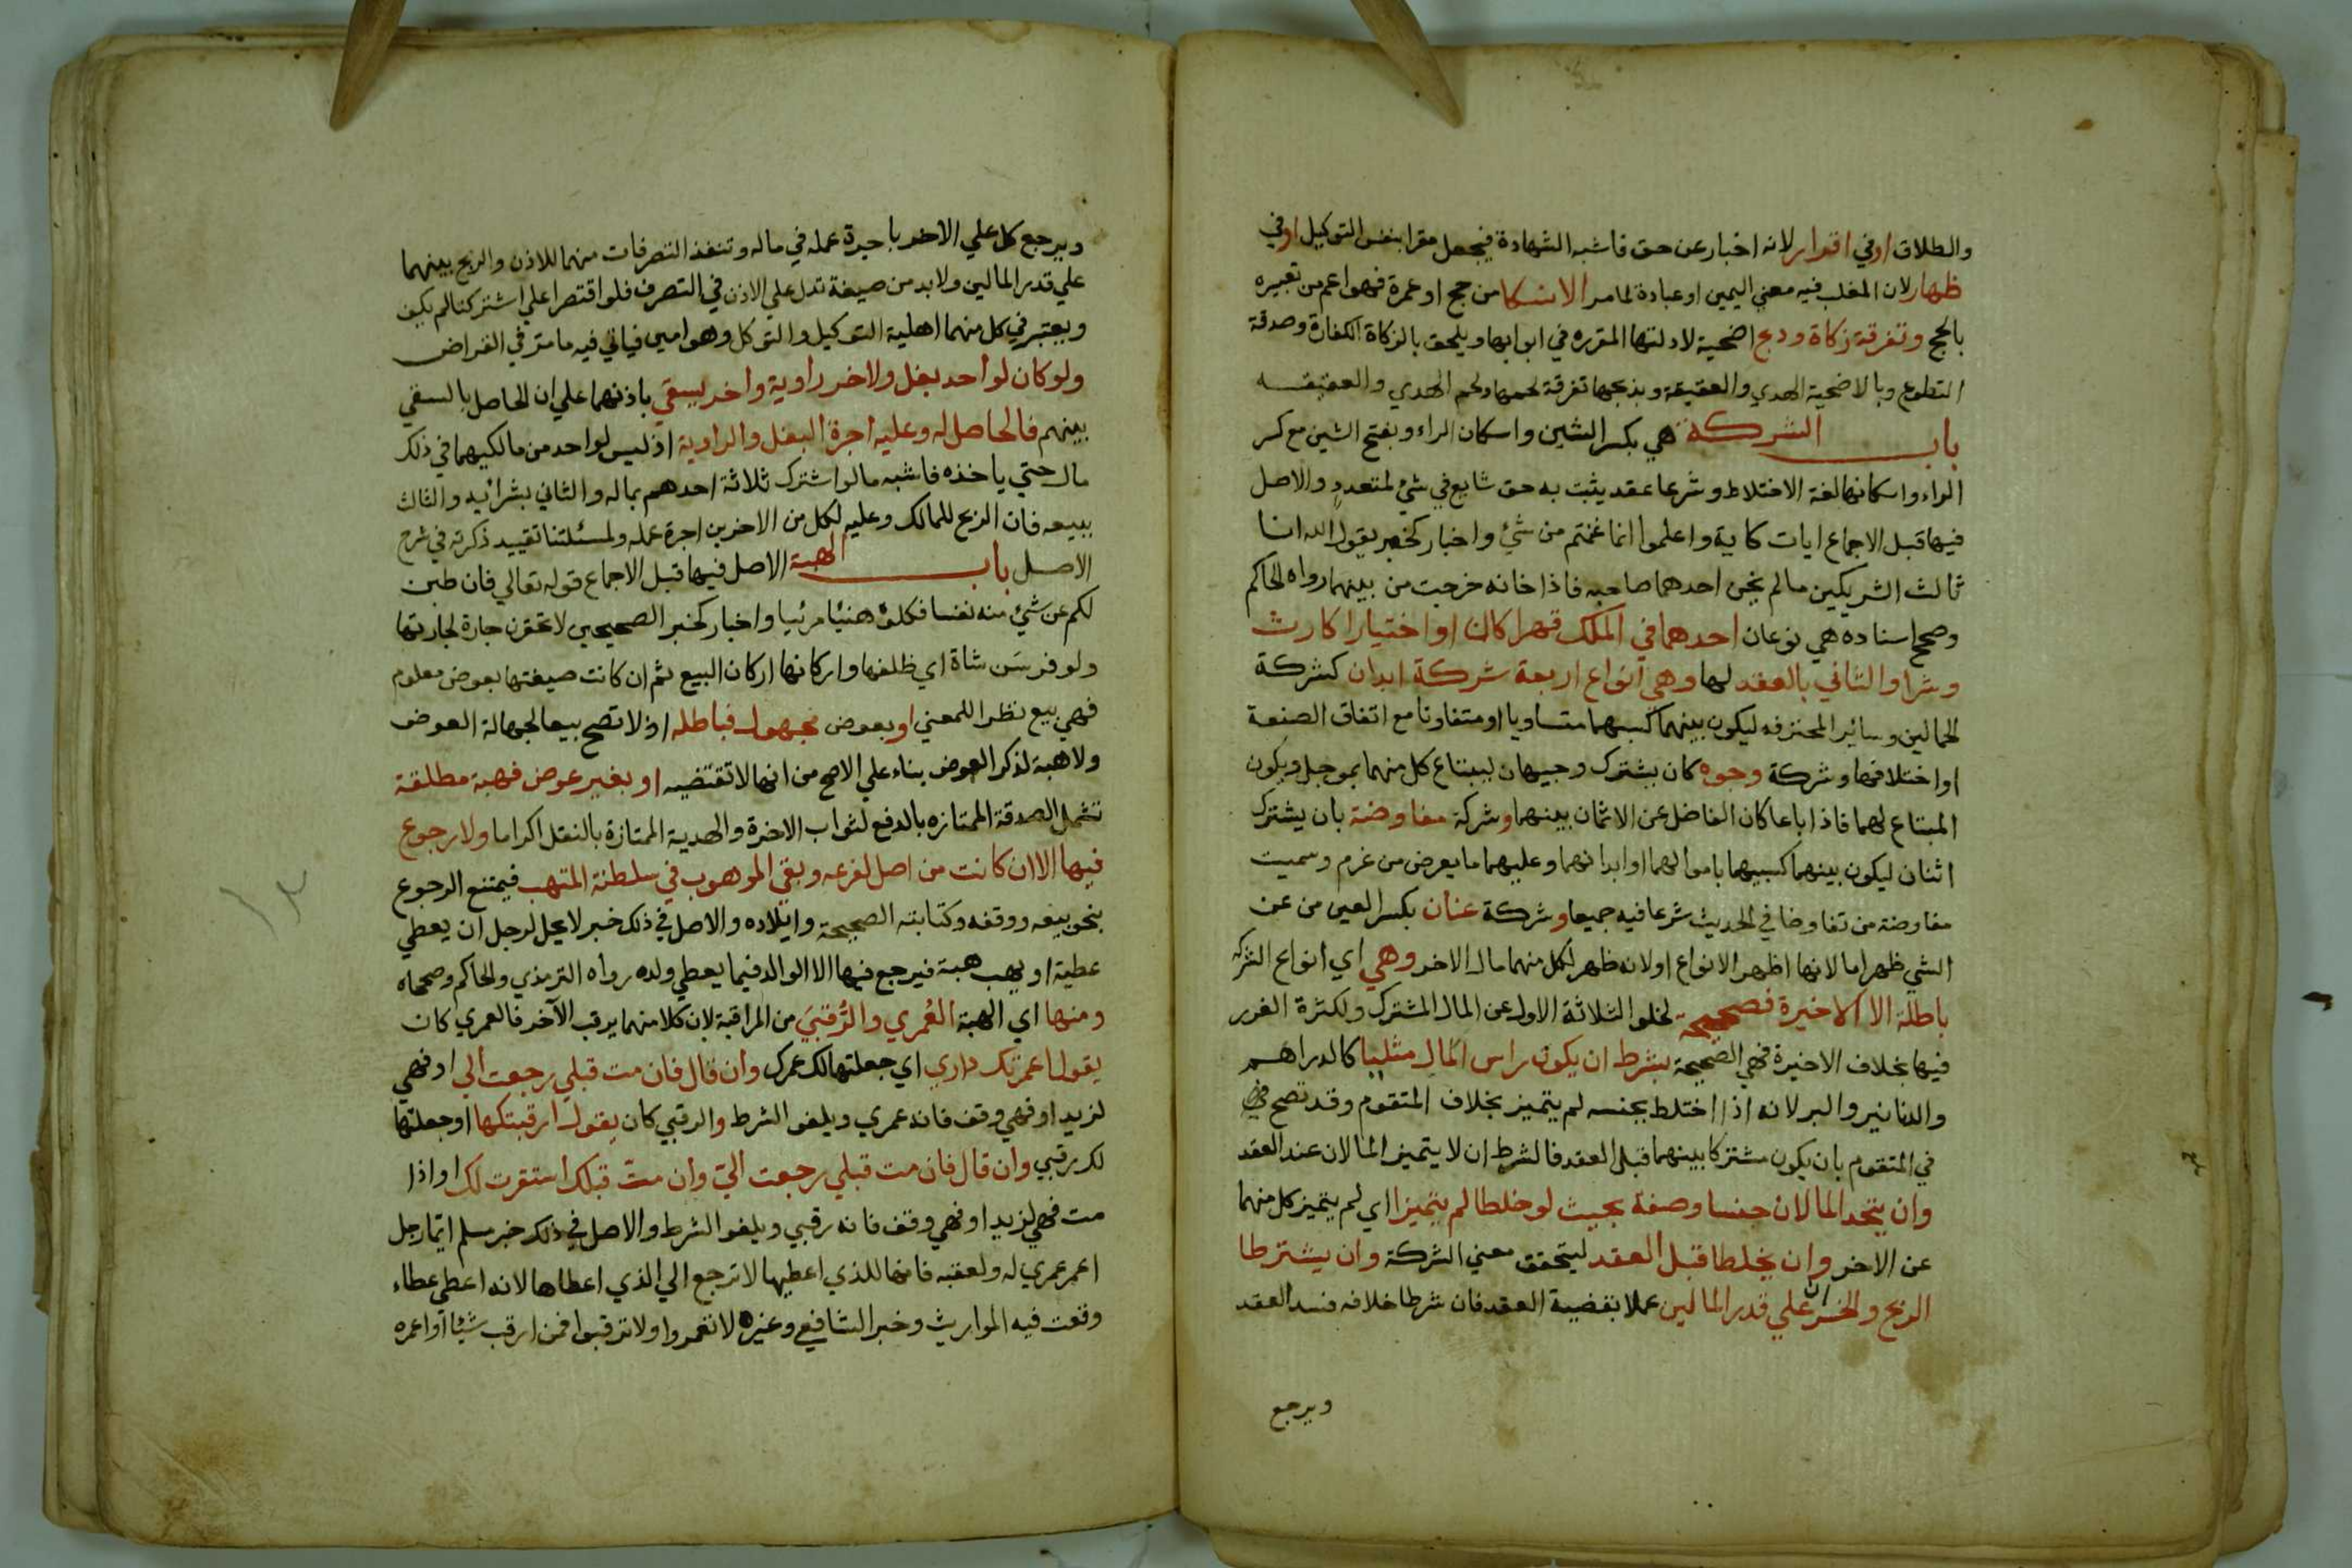 والطلاق او في اقرار لانه اخبار عن حق فاشبه الشهادة فيجعل مقرا بنفس التوكيل او في
ظهار لان المغلب فيه معني اليمين او عبادة لما مر الا نسكا من حج او عمرة فهو اعم من تعبيره
بالحج وتفرقة زكاة وذبح اضحية لادلتها المقرره في ابوابها ويلحق بالزكاة الكفارة وصدقة
التطوع وبالاضحية الهدي والعقيقة وبذبحها تفرقة لحمها ولحم الهدي والعقيقه
باب الشركة هي بكسر الشين واسكان الراء وبفتح الشين مع كسر
الراء واسكانها لغة الاختلاط وشرعا عقد يثبت به حق شايع في شئ لمتعدد والاصل
فيها قبل الاجماع ايات كاية واعلموا انما غنمتم من شئ واخبار كخبر يقول الله انا
ثالث الشريكين مالم يخن احدهما صاحبه فاذا خانه خرجت من بينهما رواه الحاكم
وصحح اسناده هي نوعان احدهما في الملك قهرا كان او اختيارا كارث
وشرا والثاني بالعقد لها وهي انواع اربعة شركة ابدان كشركة
الحمالين وسائر المحترفه ليكون بينهما كسبهما متساويا او متفاوتا مع اتفاق الصنعة
او اختلافها وشركة وجوه كان يشترك وجيهان ليبتاع كل منهما بموجل ويكون
المبتاع لهما فاذا باعا كان الفاضل عن الاثمان بينهما وشركة مفاوضة بان يشترك
اثنان ليكون بينهما كسبهما باموالهما او ابدانهما وعليهما ما يعرض من غرم وسميت
مفاوضة من تفاوضا في الحديث شرعا فيه جميعا وشركة عنان بكسر العين من عن
الشي ظهر اما لانها اظهر الانواع او لانه ظهر لكل منهما مال الاخر وهي اي انواع الشركه
باطلة الا الاخيرة فصحيحة لخلو الثلاثة الاول عن المال المشترك ولكثرة الغرر
فيها بخلاف الاخيرة فهي الصحيحة بشرط ان يكون راس المال مثليا كالدراهم
والدنانير والبر لانه اذا اختلط بجنسه لم يتميز بخلاف المتقوم وقد تصح في
في المتقوم بان يكون مشتركا بينهما قبل العقد فالشرط ان لا يتميز المالان عند العقد
وان يتحد المالان جنسا وصفة بحيث لو خلطا لم يتميزا اي لم يتميز كل منهما
عن الاخر وان يخلطا قبل العقد ليتحقق معني الشركة وان يشترطا
الربح والخسران علي قدر المالين عملا بقضية العقد فان شرطا خلافه فسد العقد
ويرجع
ويرجع كل علي الاخر باجرة عمله في ماله وتنفذ التصرفات منهما للاذن والربح بينهما
علي قدر المالين ولا بد من صيغة تدل علي الاذن في التصرف فلو اقتصرا علي اشتركنا لم يكف
ويعتبر في كل منهما اهلية التوكيل والتوكل وهو امين فياتي فيه ما مر في القراض
ولو كان لواحد بغل ولاخر راوية واخر يسقي باذنهما علي ان الحاصل بالسقي
بينهم فالحاصل له وعليه اجرة البغل والراوية اذ ليس لواحد من مالكيهما في ذلك
مال حتي ياخذه فاشبه ما لو اشترك ثلاثة احدهم بماله والثاني بشرائه والثالث
ببيعه فان الربح للمالك وعليه لكل من الاخرين اجرة عمله ولمسئلتنا تقييد ذكرته في شرح
الاصل باب الهبة الاصل فيها قبل الاجماع قوله تعالي فان طبن
لكم عن شئ منه نفسا فكلوه هنيئا مريئا واخبار كخبر الصحيحين لا تحقرن جارة لجارتها
ولو فرسن شاة اي ظلفها واركانها اركان البيع ثم ان كانت صيغتها بعوض معلوم
فهي بيع نظرا للمعني او بعوض مجهول فباطله اذ لا تصح بيعا لجهالة العوض
ولا هبة لذكر العوض بناء علي الاصح من انها لا تقتضيه او بغير عوض فهبة مطلقة
تشمل الصدقة الممتازه بالدفع لثواب الاخرة والهدية الممتازة بالنقل اكراما ولا رجوع
فيها الا ان كانت من اصل لفرعه وبقي الموهوب في سلطنة المتهب فيمتنع الرجوع
بنحو بيعه ووقفه وكتابته الصحيحة وايلاده والاصل في ذلك خبر لا يحل لرجل ان يعطي
عطية او يهب هبة فيرجع فيها الا الوالد فيما يعطي ولده رواه الترمذي والحاكم وصححاه
ومنها اي الهبة العُمري والرُقبَي من المراقبة لان كلا منهما يرقب الآخر فالعمري كان
يقول اعمرتك داري اي جعلتها لك عمرك وان قال فان مت قبلي رجعت الي او فهي
لزيد او فهي وقف فانه عمري ويلغو الشرط والرقبي كان يقول ارقبتكها او جعلتها
لك رقبي وان قال فان مت قبلي رجعت اليّ وان متّ قبلك استقرت لك او اذا
مت فهي لزيد او فهي وقف فانه رقبي ويلغو الشرط والاصل في ذلك خبر مسلم ايما رجل
اعمر عمري له ولعقبه فانها للذي اعطيها لا ترجع الي الذي اعطاها لانه اعطي عطاء
وقعت فيه المواريث وخبر الشافعي وغيره لا تعمروا ولا ترقبوا فمن ارقب شيئا او اعمره